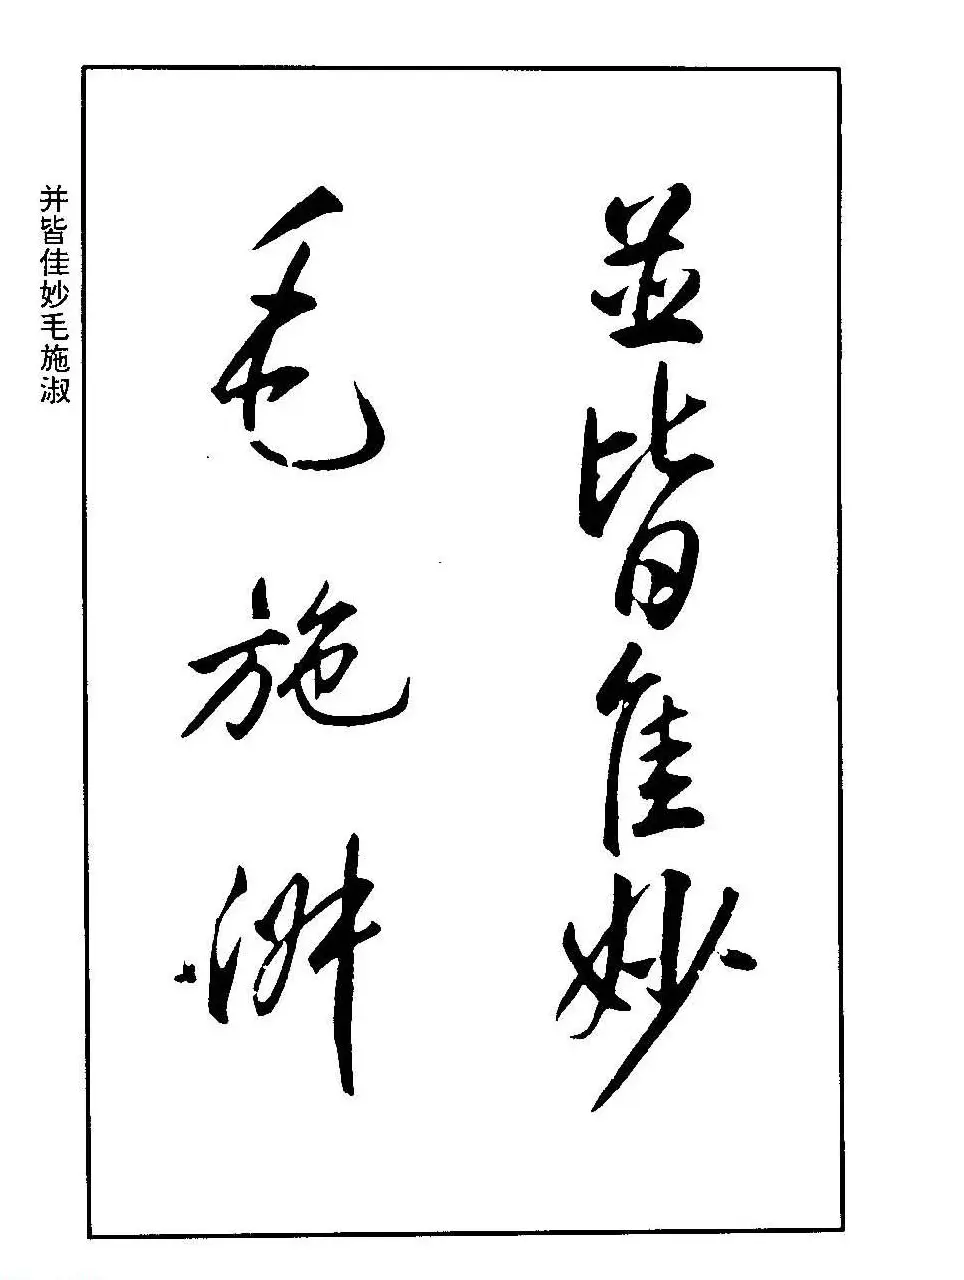 並皆佳妙
毛施淑
并皆佳妙毛施淑